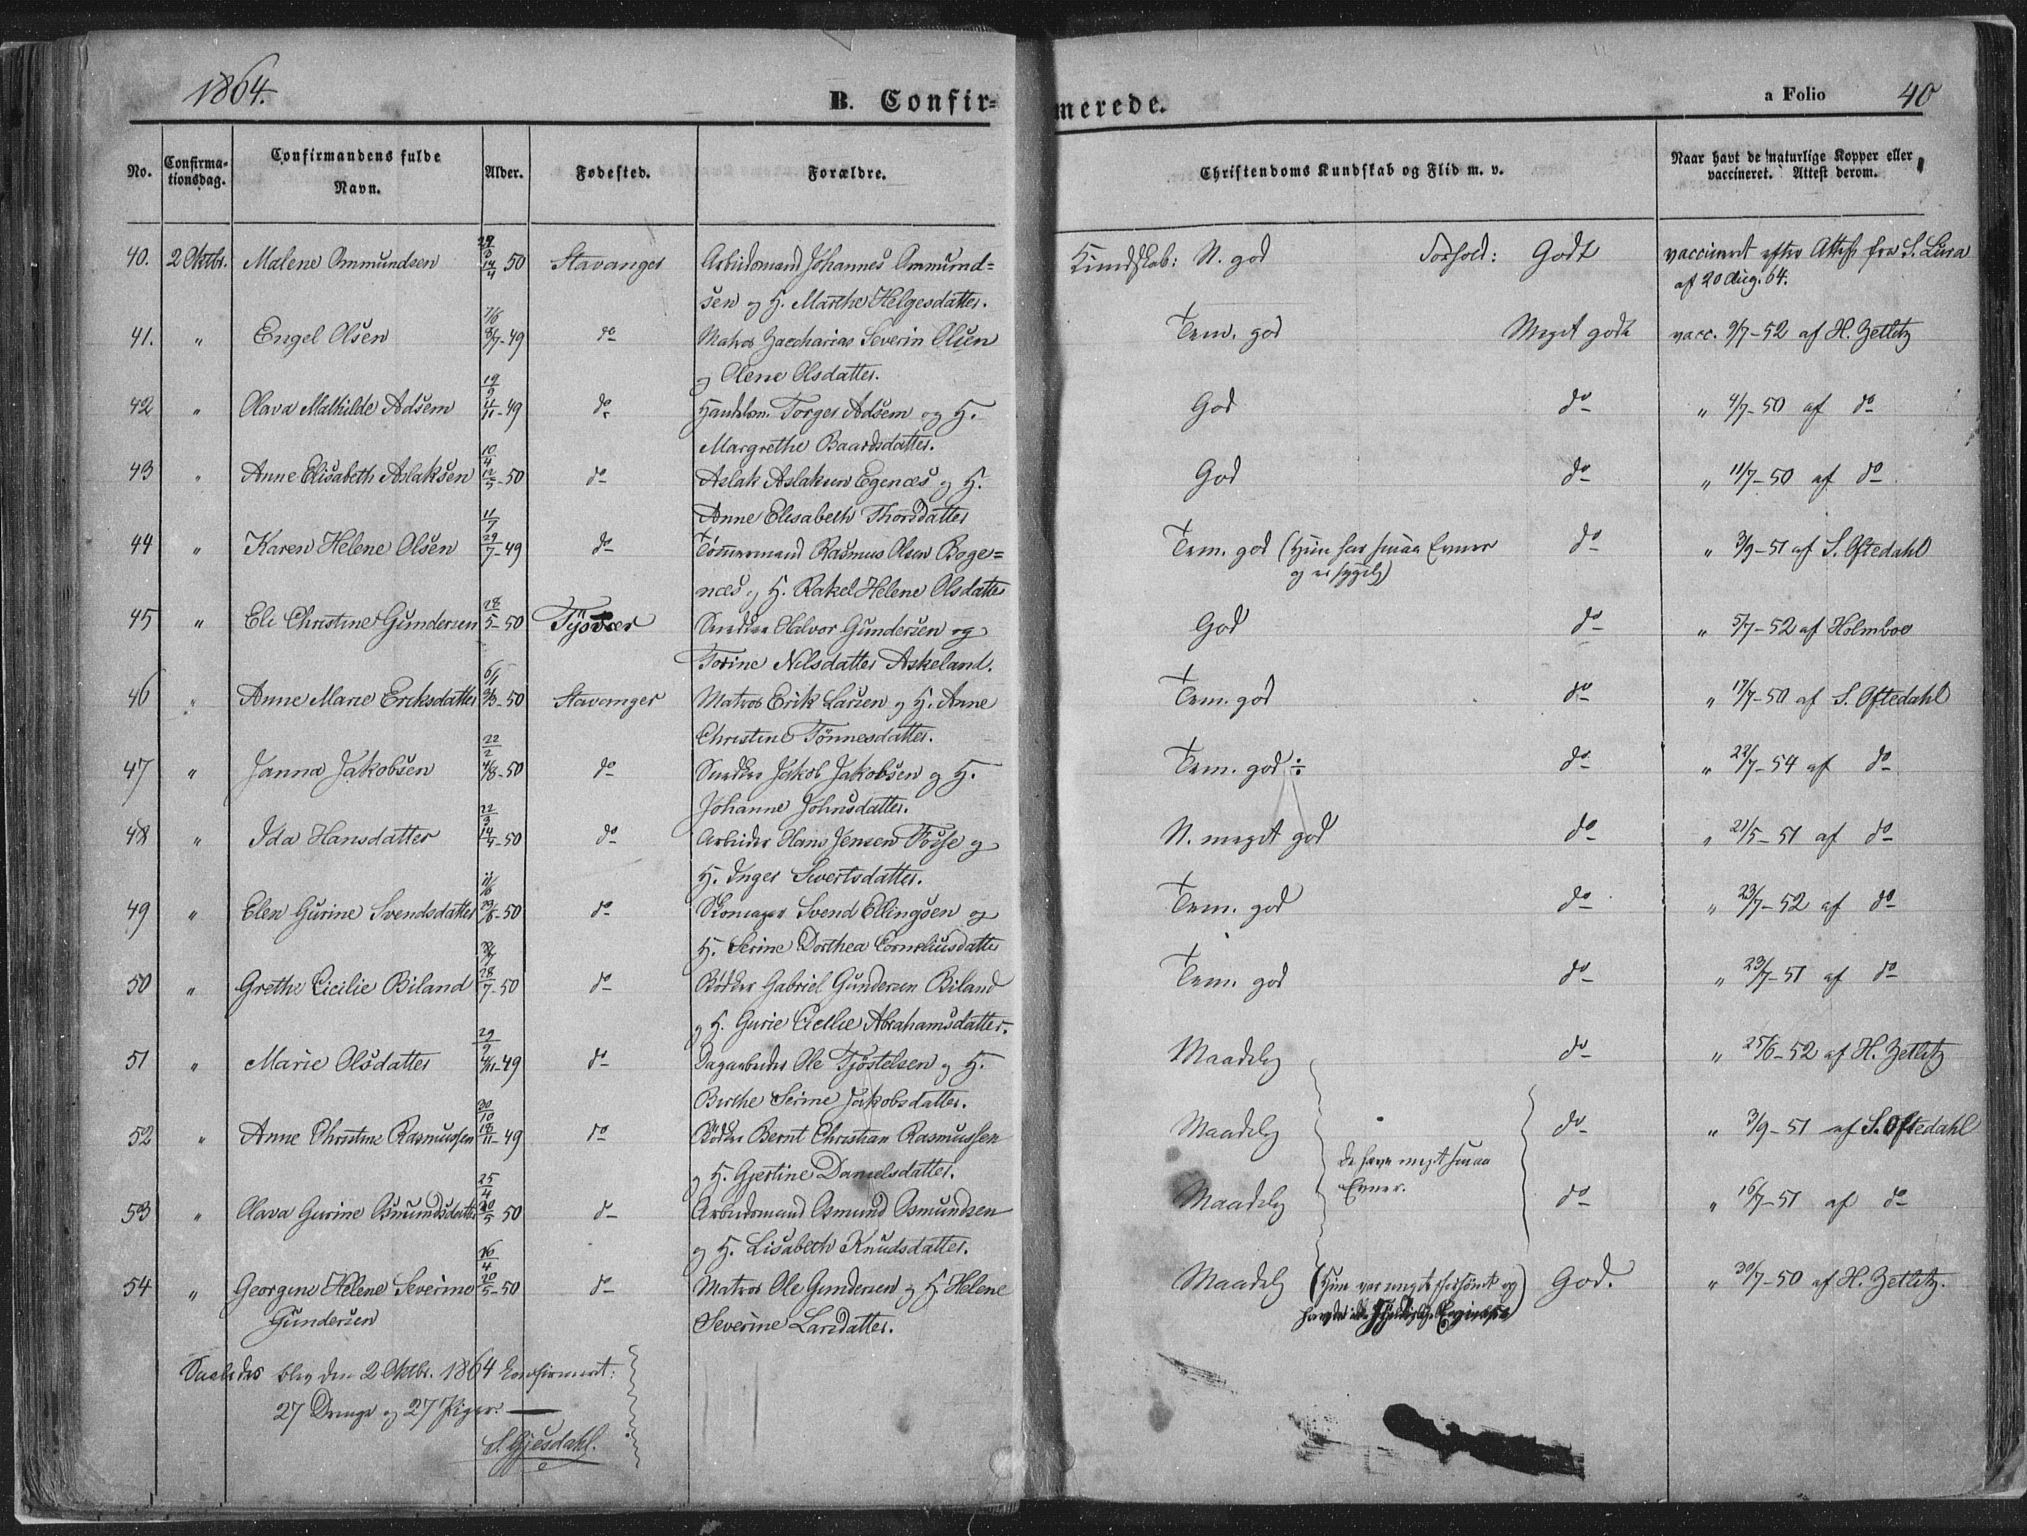 1864.
B. Confirmerede.
a Folio 40
No. Confirmationsdag. Confirmandens fulde Navn. Alder. Fødested. Forældre. Christendoms Kundskab og Flid m. v. Naar havt de naturlige Kopper eller vaccineret. Attest derom.
40. 2 Oktbr. Malene Ommundsen 14/4-50 Stavanger Arbeidsmand Johannes Ommund= Kundskab: N. god Forhold: Godt vaccineret efter Attest fra S. Lura
sen og H. Marthe Helgesdatter. af 20 Aug. 64.
41. " Engel Olsen 8/7-49 do Matros Zaccharias Severin Olsen Tem. god Meget godt vacc. 9/7-52 af H. Zetlitz
og Olene Olsdatter.
42 " Olava Mathilde Adsem 19/9 11/11-49 do Handelsm. Torger Adsem og H. God do " 4/7-50 af do
Margrethe Baardsdatter.
43 " Anne Elisabeth Aslaksen 10/4 12/5-50 do Aslak Aslaksen Egenæs og H. God do " 11/7-50 af do
Anne Elisabeth Thorsdatter
44 " Karen Helene Olsen 11/7 29/7-49 do Tømmermand Rasmus Olsen Boge= Tem. god (Hun har smaa Evner do " 3/9-51 af S. Oftedahl
næs og H. Rakel Helene Olsdatter og er sygelig)
45 " Eli Christine Gundersen 28/5-50 Tysvær Snedker Halvor Gundersen og God do " 5/7-52 af Holmboe
Torine Nilsdatter Askeland.
46 " Anne Marie Eriksdatter 6/1 2/3-50 Stavanger Matros Erik Larsen og H. Anne Tem. god do " 17/7-50 af S. Oftedahl
Christine Tønnesdatter.
47 " Janna Jakobsen 22/2 4/8-50 do Snedker Jakob Jakobsen og H. Tem. god ÷ do " 22/7-54 af do
Johanne Johnsdatter.
48 " Ida Hansdatter 22/3 14/4-50 do Arbeider Hans Jensen Fosse og N. meget god do " 21/5-51 af do
H. Inger Sivertsdatter.
49 " Elen Gurine Svendsdatter -50 do Skomager Svend Ellingsen og Tem. god do " 23/7-52 af do
H. Serine Dorthea Corneliusdatter
50 " Grethe Cicilie Biland 28/7-50 do Bødker Gabriel Gundersen Biland Tem. god do " 23/7-51 af do
og H. Gurie Cicilie Abrahamsdatter.
51 " Marie Olsdatter 29/9 4/11-49 do Dagarbeider Ole Tjøstelsen og H. Maadelig do " 25/6-52 af H. Zetlitz
Berthe Serine Jakobsdatter.
52 " Anne Christine Rasmussen 20/10 18/11-49 do Bødker Bernt Christian Rasmussen Maadelig do " 3/9-51 af S. Oftedahl
og H. Gjertine Danielsdatter. de have meget smaa
Evner.
53 " Olava Gurine Osmundsdatter 25/4 20/5-50 do Arbeidsmand Osmund Osmundsen Maadelig do " 16/7-51 af do
og H. Lisabeth Knudsdatter.
54 " Georgine Helene Severine 16/4 20/5-50 do Matros Ole Gundersen og H. Helene Maadelig (Hun var meget forsømt og God. " 30/7-50 af H. Zetlitz.
Gundersen Severine Larsdatter. havde ikke
Saaledes blev den 2 Oktbr. 1864 Confirmeret:
27 Drenge og 27 Piger.
S. Gjesdahl.